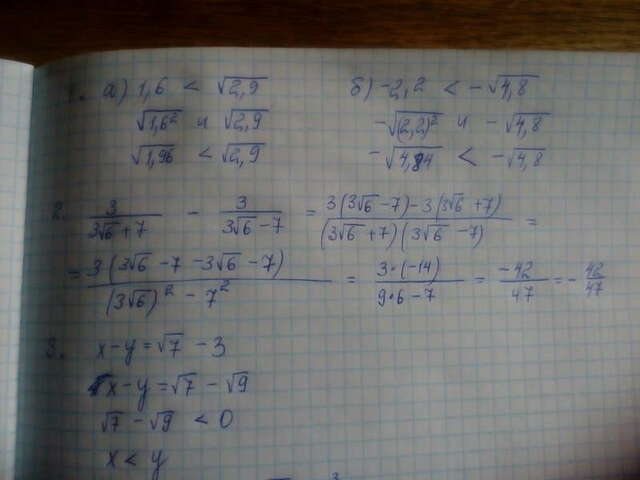 1. а) 1,6 < √2,9 б) -2,2 < -√4,8
√1,6² и √2,9 -√(2,2)² и -√4,8
√1,96 < √2,9 -√4,84 < -√4,8
2. 3/(3√6+7) - 3/(3√6-7) = (3(3√6-7)-3(3√6+7))/((3√6+7)(3√6-7)) =
= 3(3√6-7-3√6-7)/((3√6)²-7²) = 3·(-14)/(9·6-7) = -42/47 = -42/47
3. x-y=√7-3
x-y=√7-√9
√7-√9 <0
x<y